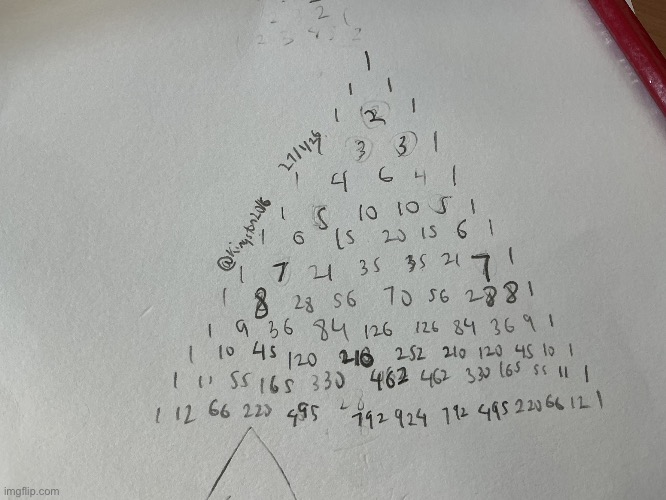 1
1 1
1 2 1
27/4/26
1 3 3 1
1 4 6 4 1
@kingston2016
1 5 10 10 5 1
1 6 15 20 15 6 1
1 7 21 35 35 21 7 1
1 8 28 56 70 56 28 8 1
1 9 36 84 126 126 84 36 9 1
1 10 45 120 210 252 210 120 45 10 1
1 11 55 165 330 462 462 330 165 55 11 1
1 12 66 220 495 792 924 792 495 220 66 12 1
imgflip.com